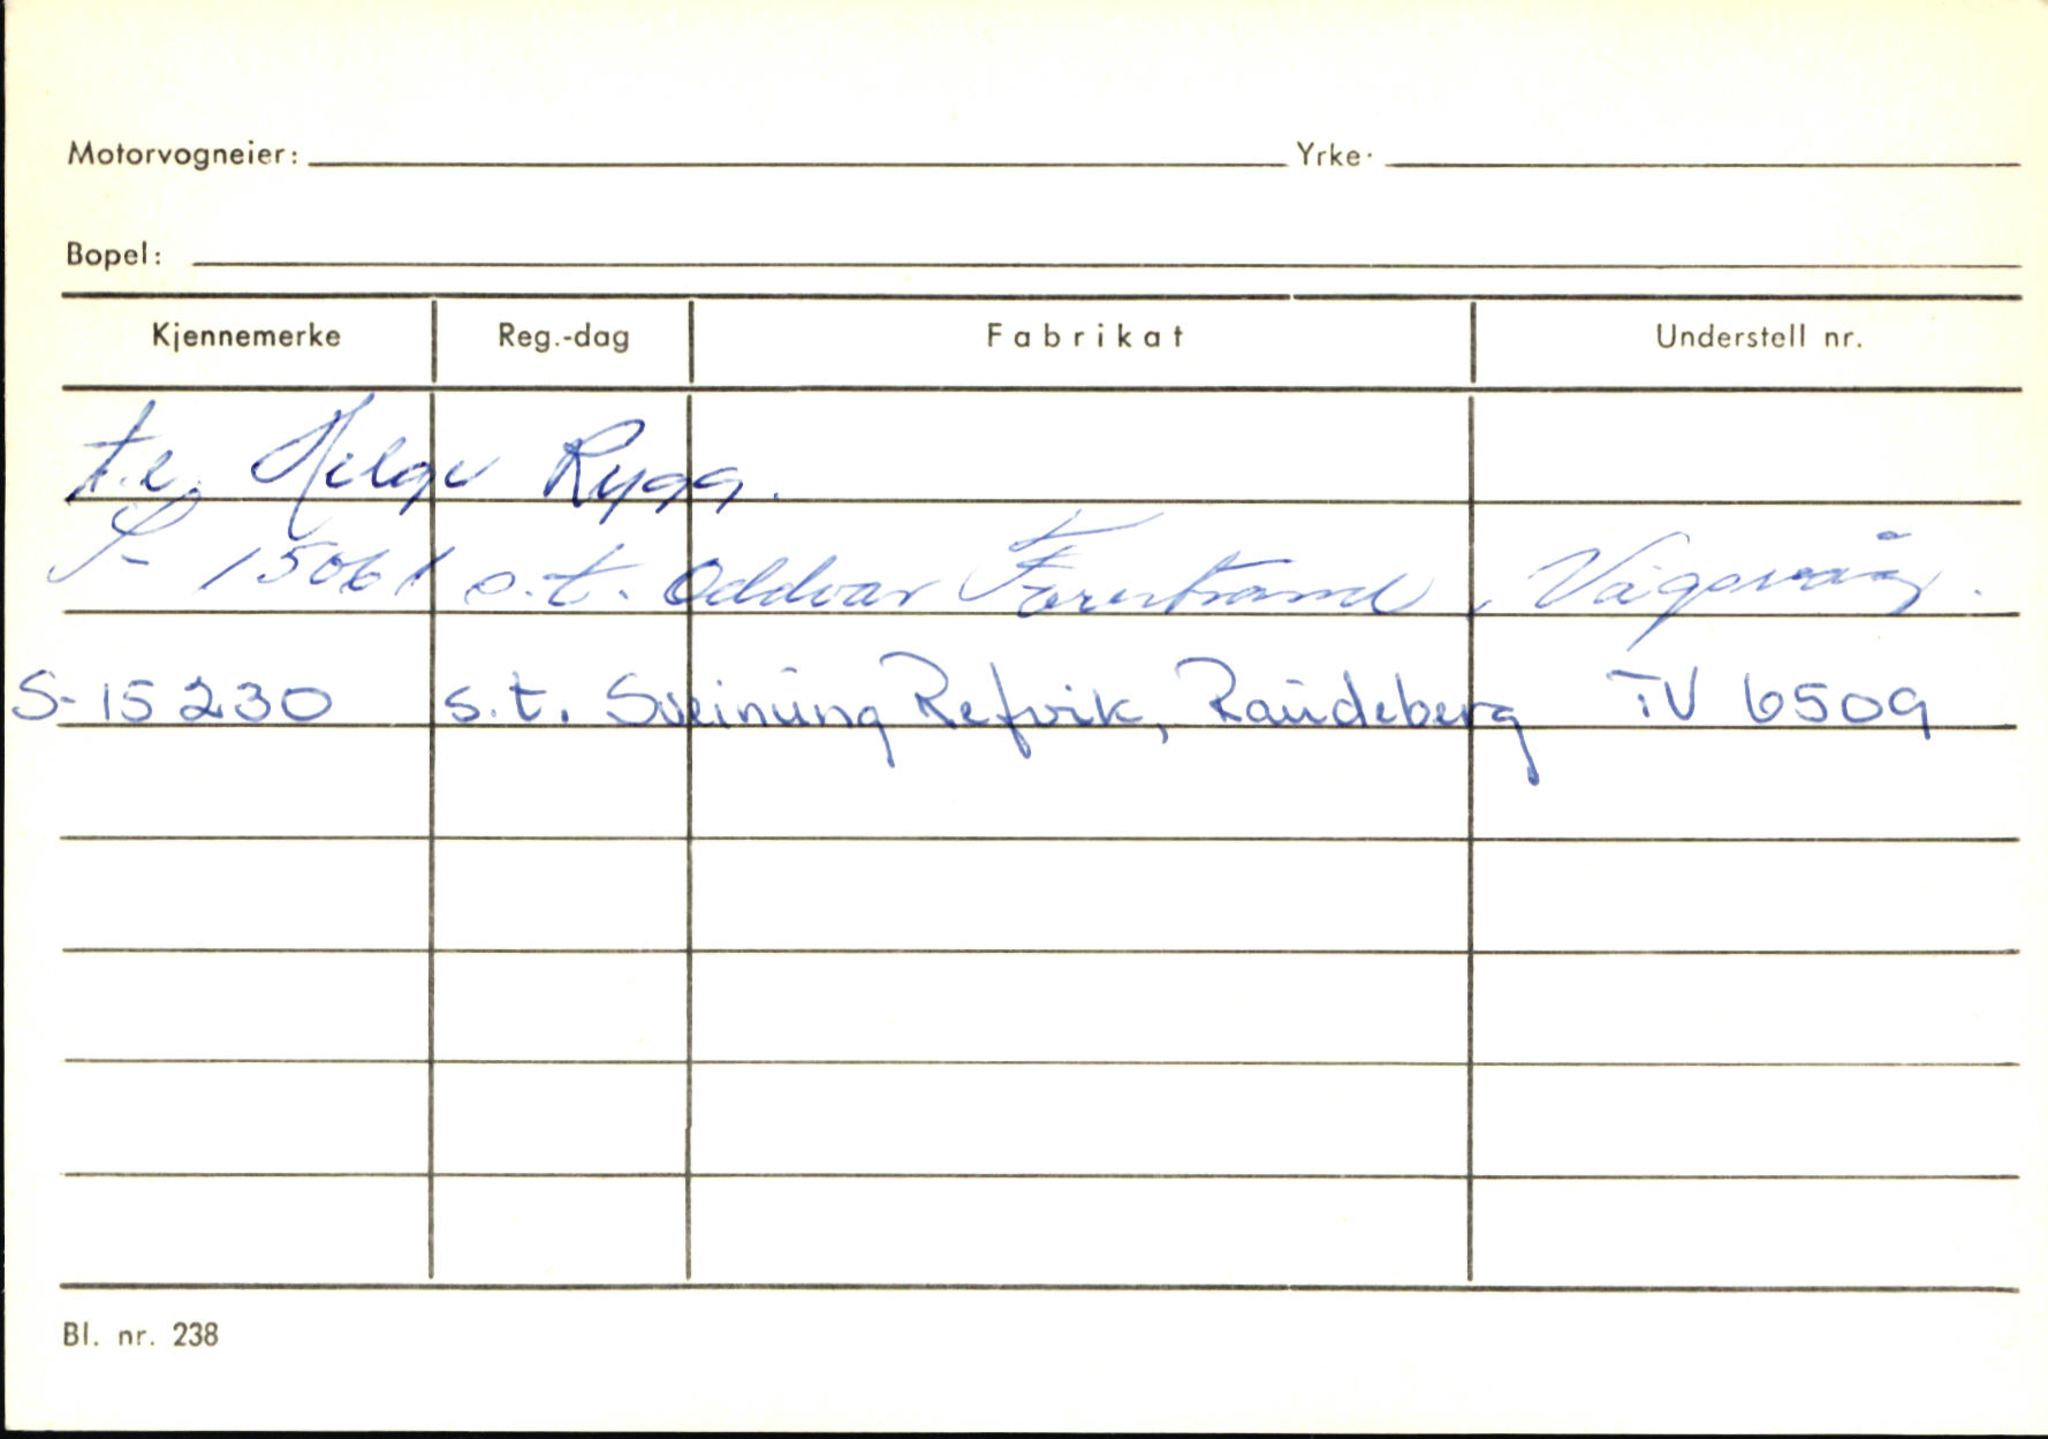 Motorvogneier: Yrke.
Bopel:
Kjennemerke Reg.-dag Fabrikat Understell nr.
t.e. Helge Rygg.
S- 15061 s.t. Oddvar Førestrand, Vågsvåg.
S-15230 s.t. Sveinung Refvik, Raudeberg TV 6509
Bl. nr. 238